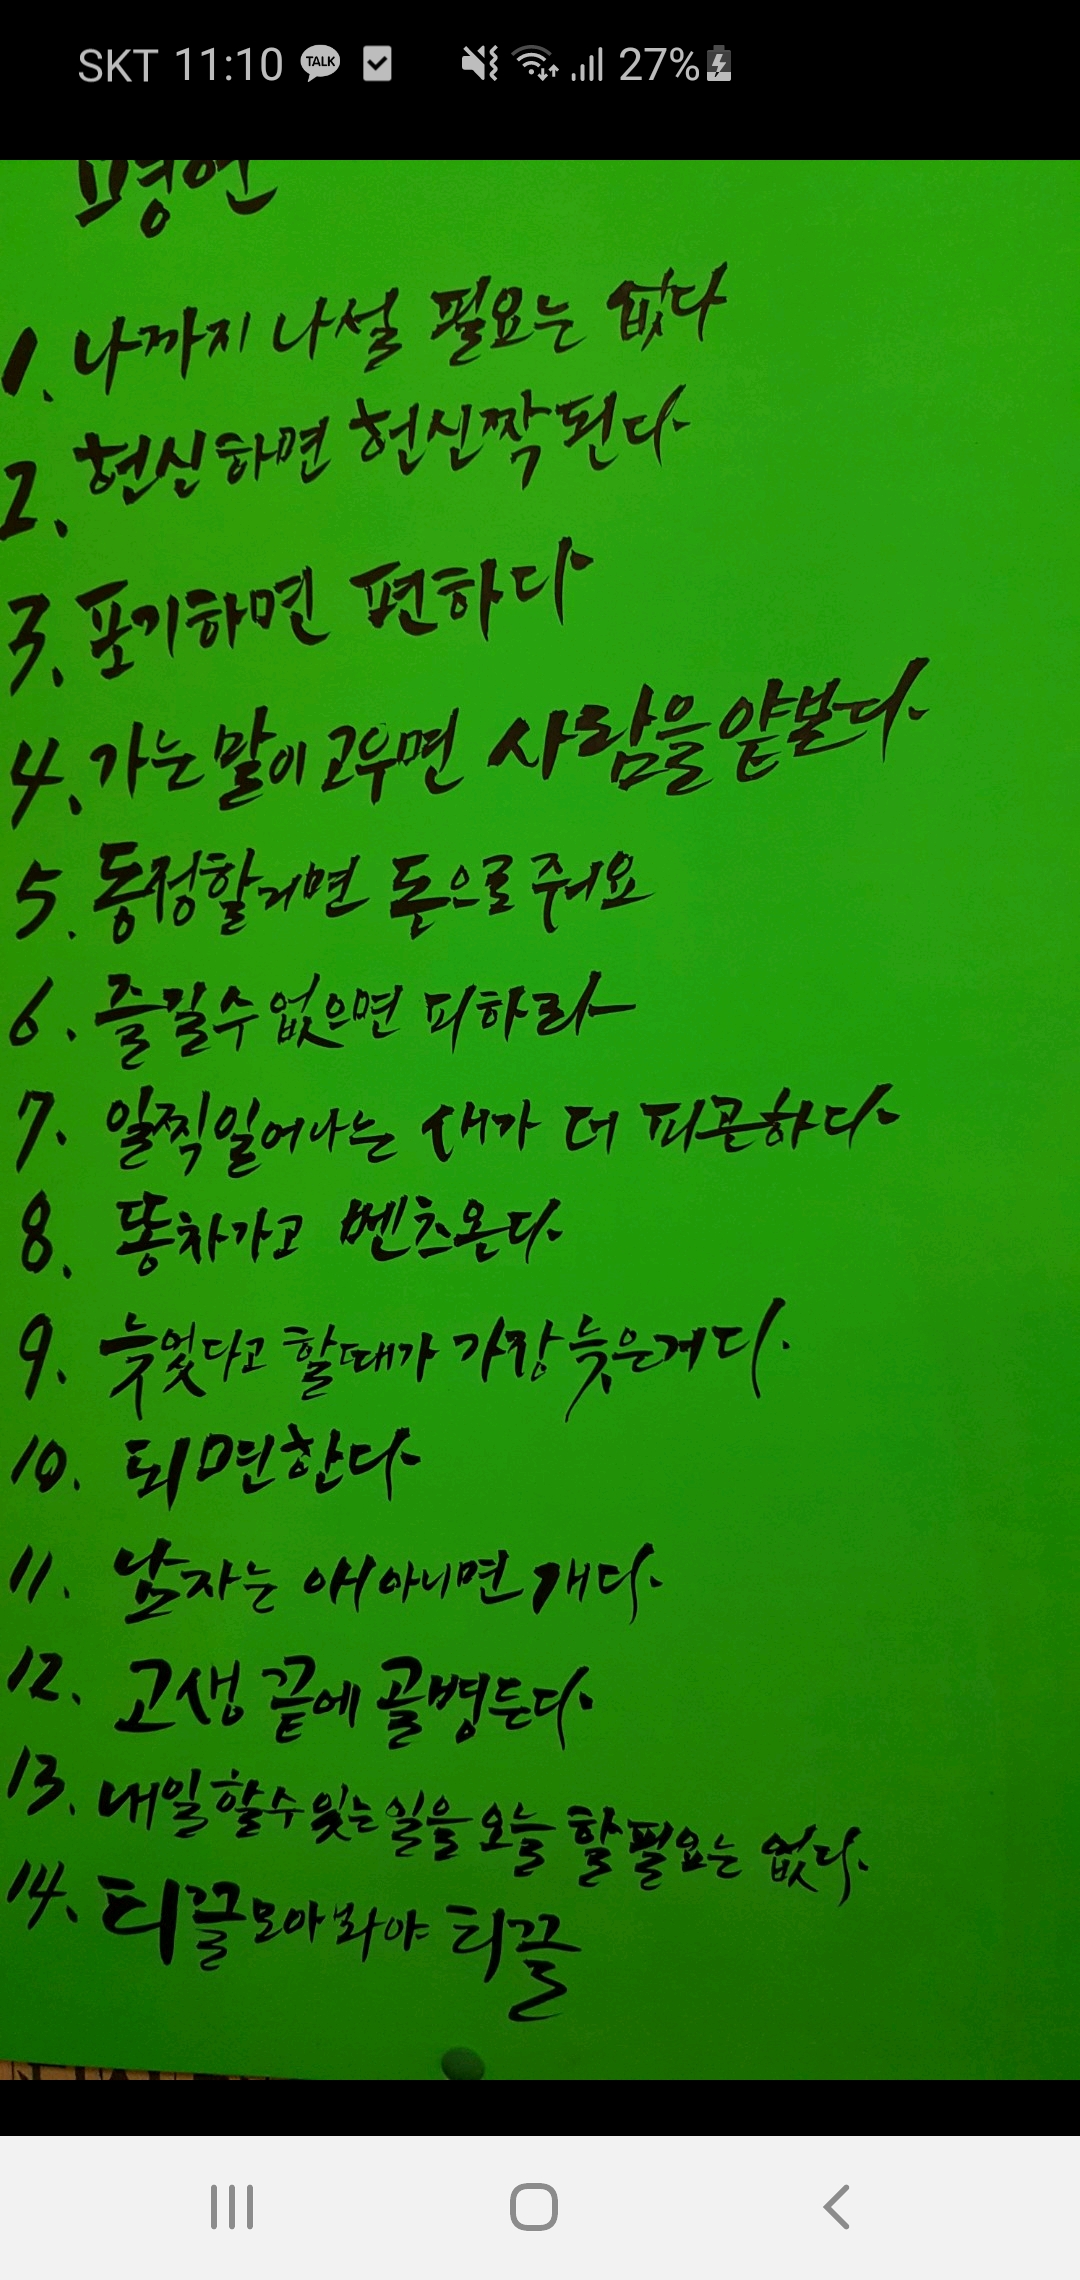 SKT 11:10 TALK 27%
명언
1. 나까지 나설 필요는 없다
2. 헌신하면 헌신짝된다.
3. 포기하면 편하다
4. 가는말이고우면 사람을얕본다.
5. 동정할거면 돈으로줘요
6. 즐길수없으면 피하라
7. 일찍일어나는 새가 더 피곤하다.
8. 똥차가고 벤츠온다.
9. 늦었다고 할때가 가장늦은거다.
10. 되면한다.
11. 남자는 애아니면개다.
12. 고생 끝에 골병든다.
13. 내일할수있는일을오늘 할필요는 없다.
14. 티끌모아봐야 티끌